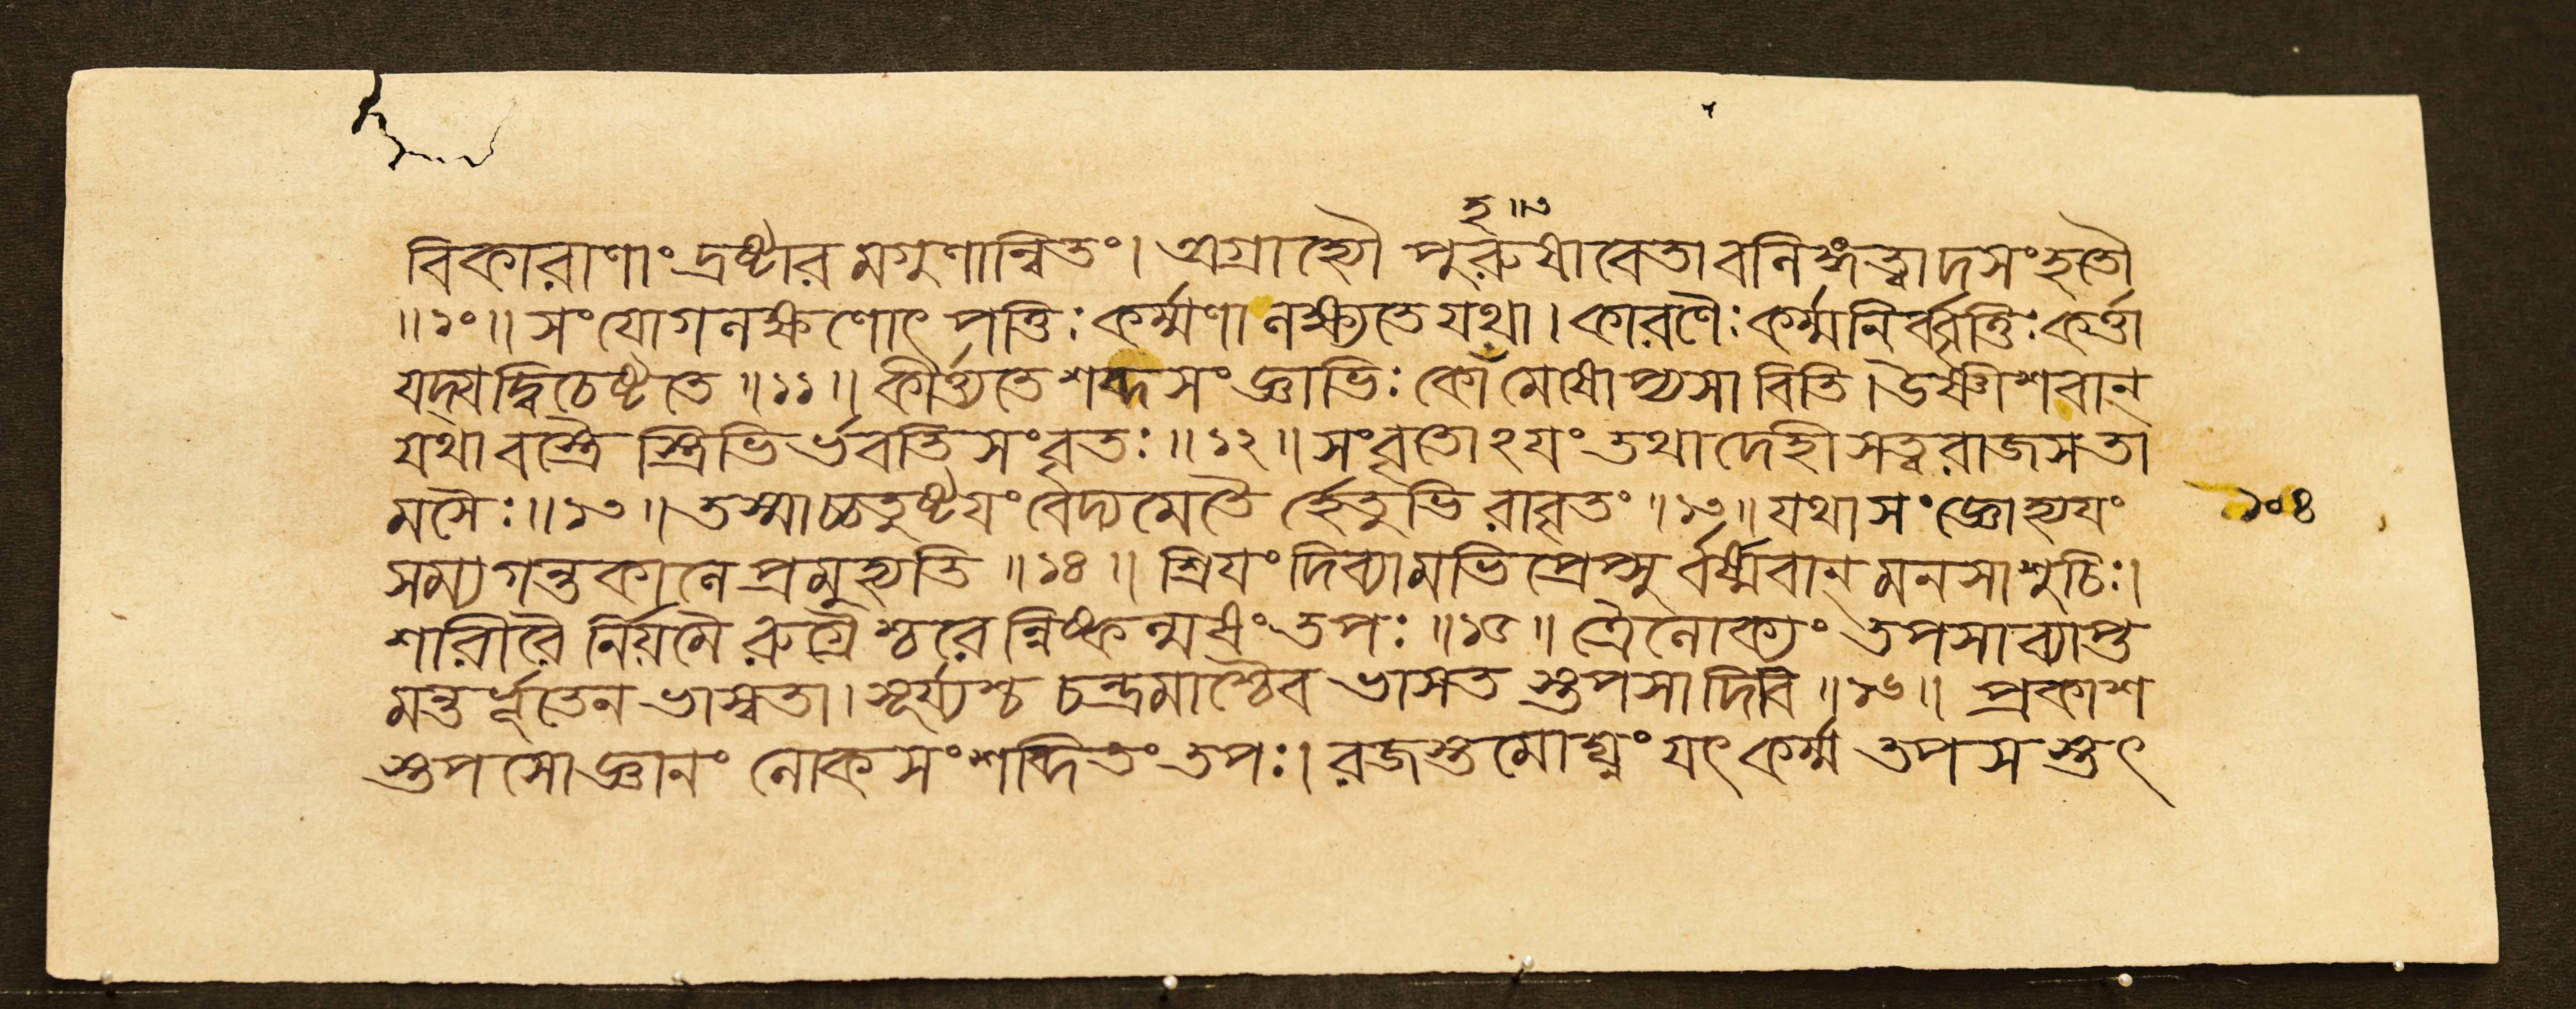 হ॥৩
বিকারাণাং দ্রষ্টার মগুণান্বিতং। অগ্রাহ্যৌ পুরুষাবেতাবনিঙ্গত্বাদসংহতৌ
॥১০॥ সংযোগনক্ষণোৎ পত্তিঃ কর্ম্মণা নক্ষ্যতে যথা। কারণৈঃ কর্ম্মনির্ব্বৃত্তিঃ কর্ত্তা
যদ্যদ্বিচেষ্টতে ॥১১॥ কীর্ত্ত্যতে শব্দসংজ্ঞাভিঃ কোঁমেষোপ্যসাবিতি। উষ্ণীশবান্
যথা বস্ত্রৈ স্ত্রিভি র্ভবতি সংবৃতঃ ॥১২॥ সংবৃতোঽয়ং তথা দেহী সত্ত্বরাজসতা
মসৈঃ ॥১৩॥ তস্মাচ্চতুষ্টয়ং বেদ্যমেতৈ র্হেতুভি রাবৃতং ॥১৩॥ যথাসংজ্ঞোহ্যয়ং
১০৪
সম্যগন্তকানে প্রমুহ্যতি ॥১৪॥ শ্রিয়ং দিব্যামভিপ্রেপ্সু র্বর্ষ্মবান্ মনসা শুচিঃ।
শারীরৈ র্নিয়মৈ রুগ্রৈ শ্চরে ন্নিষ্কন্মষং তপঃ ॥১৫॥ ত্রৈনোক্যং তপসা ব্যাপ্ত
মন্তর্ভূতেন ভাস্বতা। সূর্য্যশ্চ চন্দ্রমাশ্চৈব ভাসত স্তপসা দিবি ॥১৬॥ প্রকাশ
স্তপসো জ্ঞানং নোক সংশব্দিতং তপঃ। রজস্তমোঘ্নং যৎ কর্ম্ম তপস স্তৎ